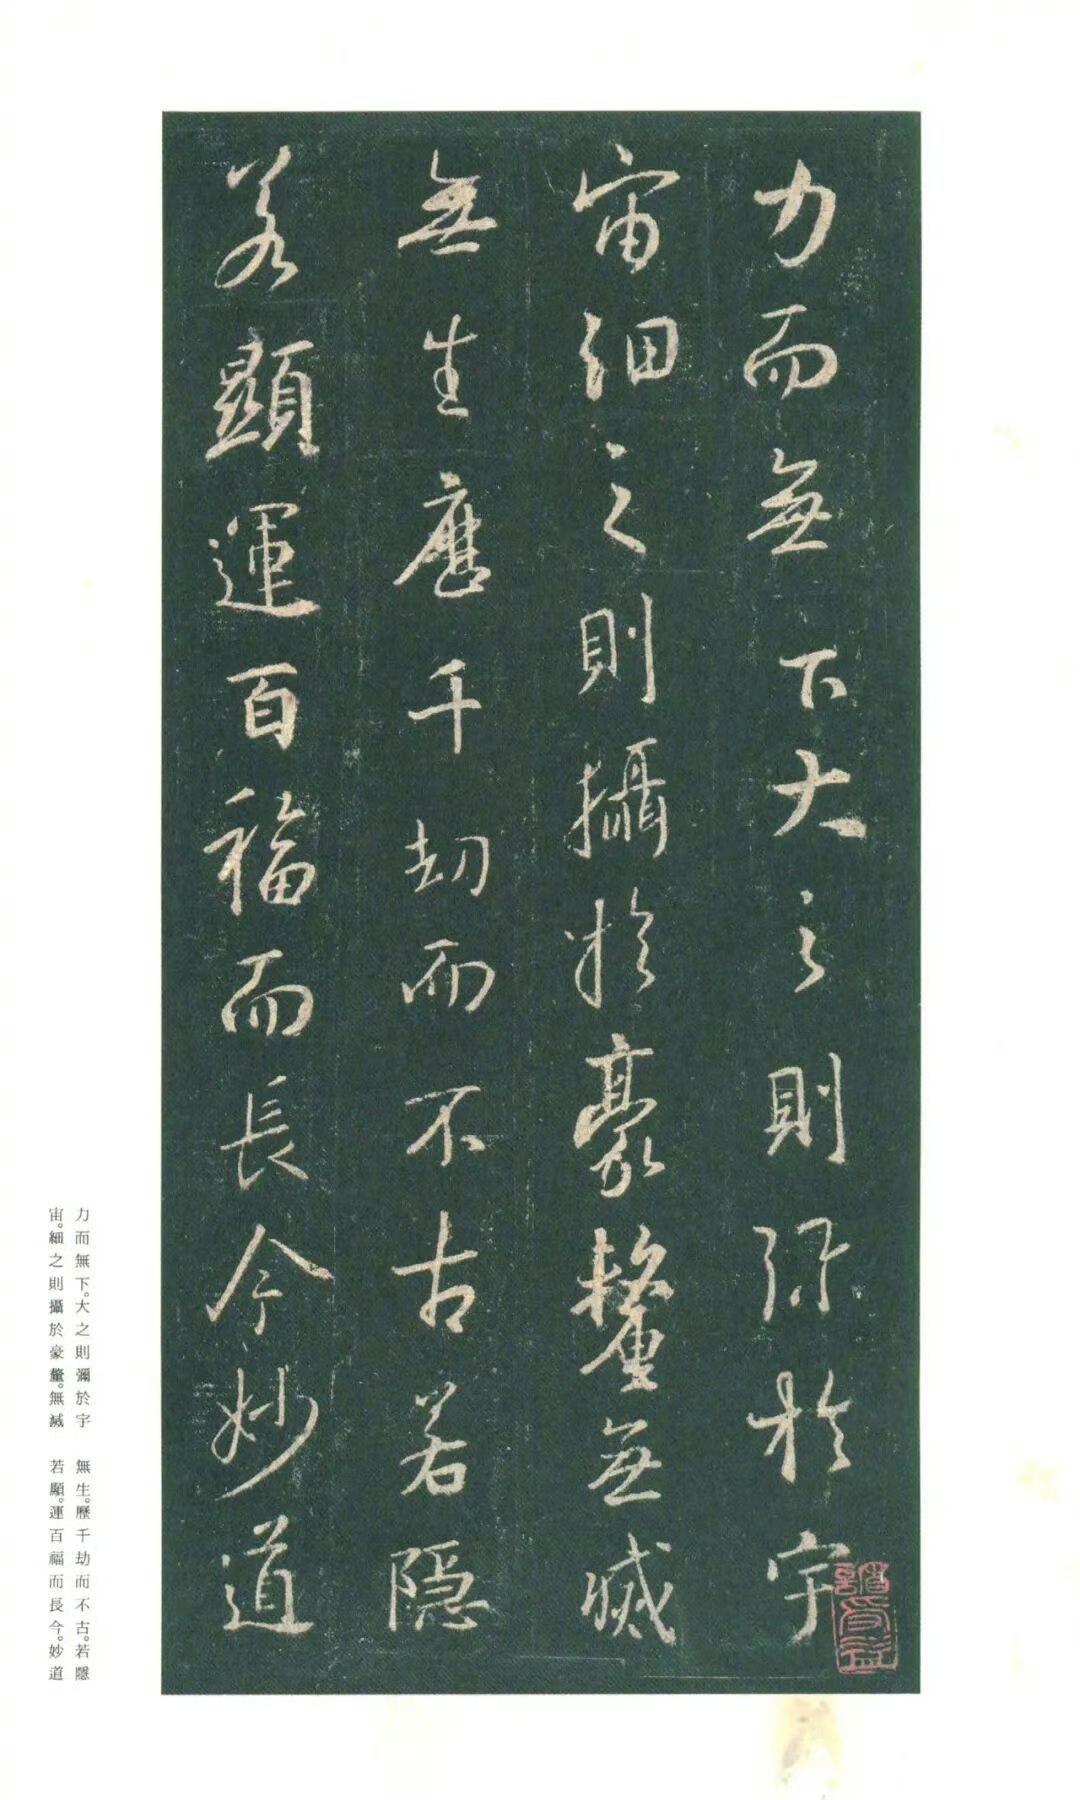 力而無下大之則彌於宇
宙細之則攝於豪氂無滅
無生歷千劫而不古若隱
若顯運百福而長今妙道
力而無下。大之則彌於宇
宙。細之則攝於豪釐。無滅
無生。歷千劫而不古。若隱
若顯。運百福而長今。妙道